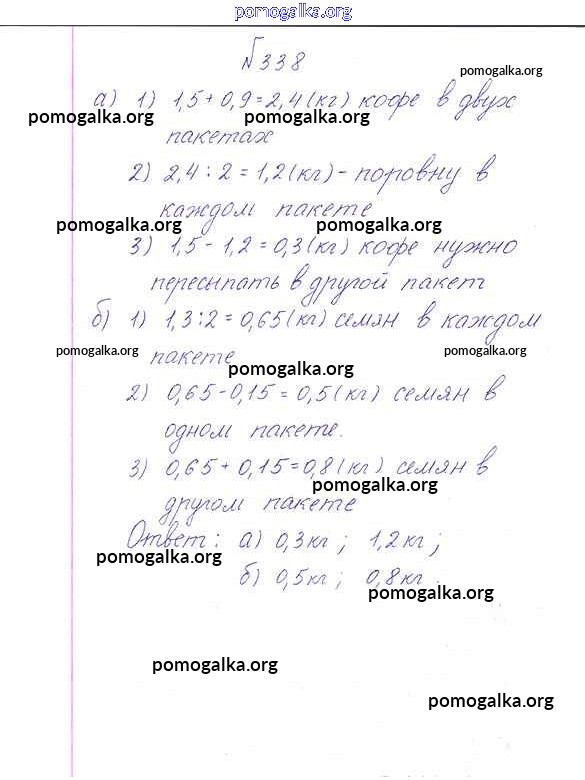 pomogalka.org
№338
pomogalka.org
а) 1) 1,5 + 0,9 = 2,4 (кг) кофе в двух
pomogalka.org pomogalka.org
пакетах
2) 2,4 : 2 = 1,2 (кг) - поровну в
каждом пакете
pomogalka.org pomogalka.org
3) 1,5 - 1,2 = 0,3 (кг) кофе нужно
пересыпать в другой пакет
б) 1) 1,3 : 2 = 0,65 (кг) семян в каждом
pomogalka.org пакете pomogalka.org
pomogalka.org
2) 0,65 - 0,15 = 0,5 (кг) семян в
одном пакете.
3) 0,65 + 0,15 = 0,8 (кг) семян в
pomogalka.org
другом пакете
Ответ: а) 0,3 кг ; 1,2 кг ;
pomogalka.org
б) 0,5 кг ; 0,8 кг .
pomogalka.org
pomogalka.org
pomogalka.org